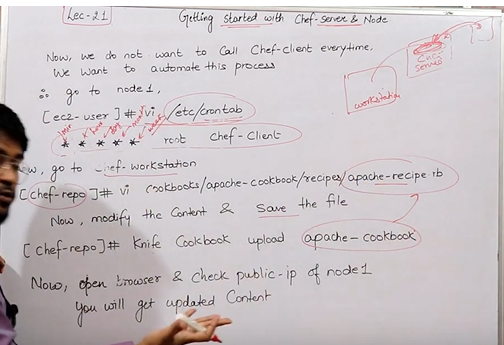 Lec-21
Getting started with Chef-Server & Node
Now, we do not want to Call Chef-Client everytime.
We want to automate this process
∴ go to node1,
[ec2-user]# vi /etc/crontab
* * * * * root Chef-Client
go to chef-workstation
[chef-repo]# vi cookbooks/apache-cookbook/recipes/apache-recipe.rb
Now, modify the Content & Save the file
[chef-repo]# Knife Cookbook upload apache-cookbook
Now, open browser & check public-ip of node1
You will get updated Content
workstation
Chef
server